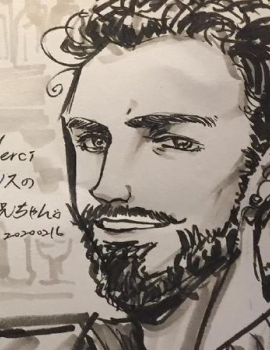 Merci
スの
兄ちゃん。
20200216